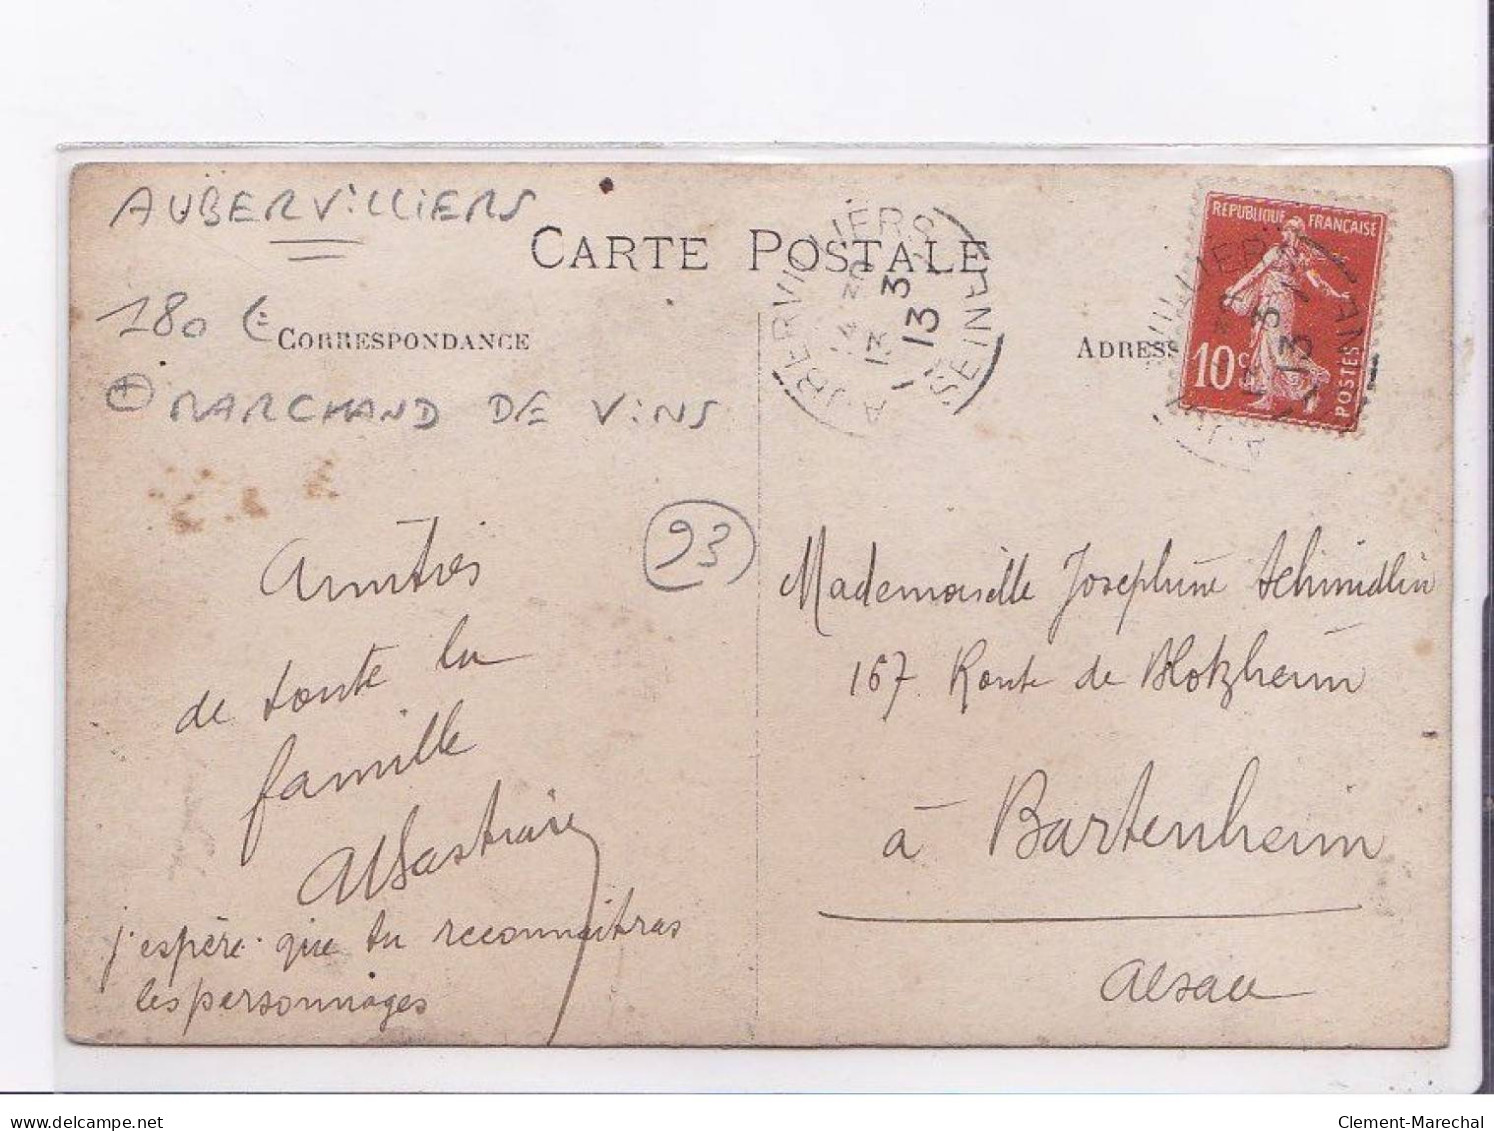 AUBERVILLIERS
CARTE POSTALE
180 €
CORRESPONDANCE
+ MARCHAND DE VINS
AUBERVILLIERS
SEINE
13 3
13
ADRESS
REPUBLIQUE FRANÇAISE
10c
POSTES
Amitiés
de toute la
famille
j'espère que tu reconnaitras
les personnages
93
Mademoiselle Josephine Schmidlin
167 Route de Blotzheim
à Bartenheim
Alsace
delcampe.net
Clement-Marechal